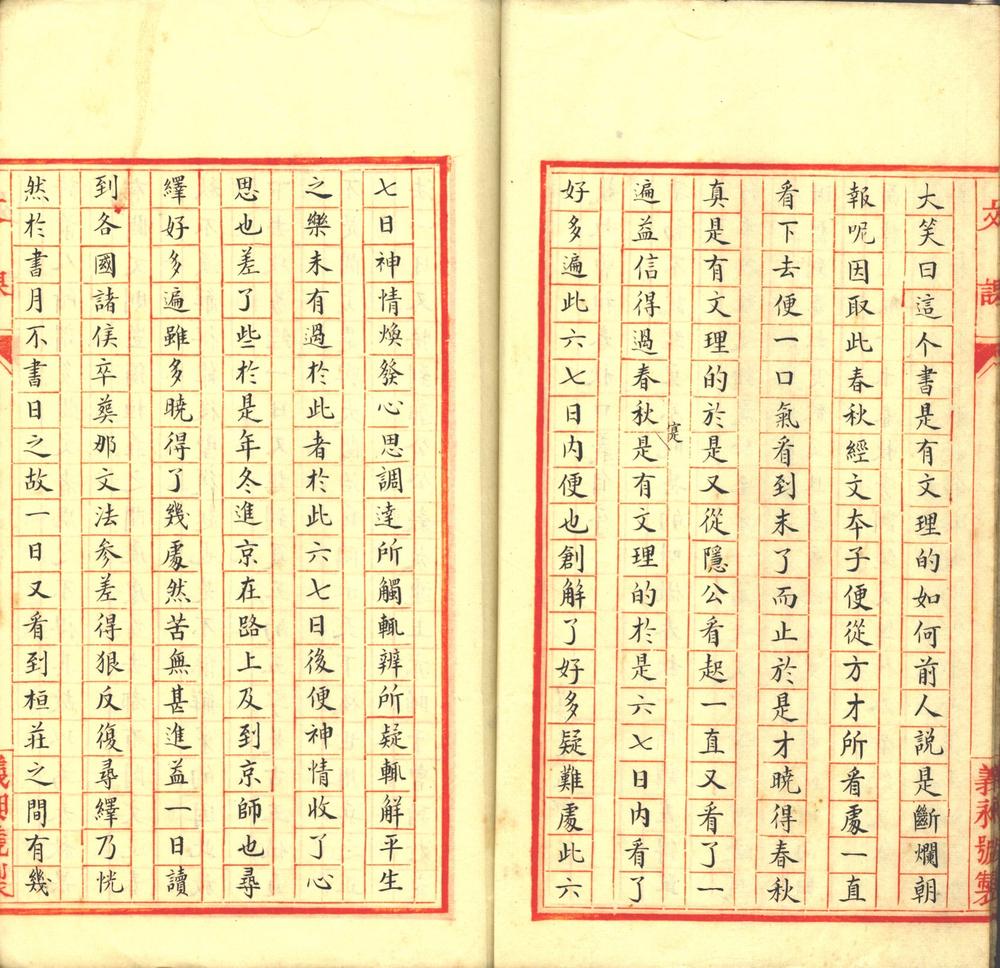 文課
義和號製
大笑曰這个書是有文理的如何前人説是斷爛朝
報呢因取此春秋經文夲子便從方才所看處一直
看下去便一口氣看到末了而止於是才曉得春秋
真是有文理的於是又從隱公看起一直又看了一
遍益信得過春秋是有文理的於是六七日内看了
寔
好多遍此六七日内便也創解了好多疑難處此六
七日神情煥發心思調達所觸輒辨所疑輒解平生
之樂未有過於此者於此六七日後便神情收了心
思也差了些於是年冬進京在路上及到京師也尋
繹好多遍雖多曉得了幾處然苦無甚進益一日讀
到各國諸侯卒葬那文法參差得狠反復尋繹乃恍
然於書月不書日之故一日又看到桓莊之間有幾